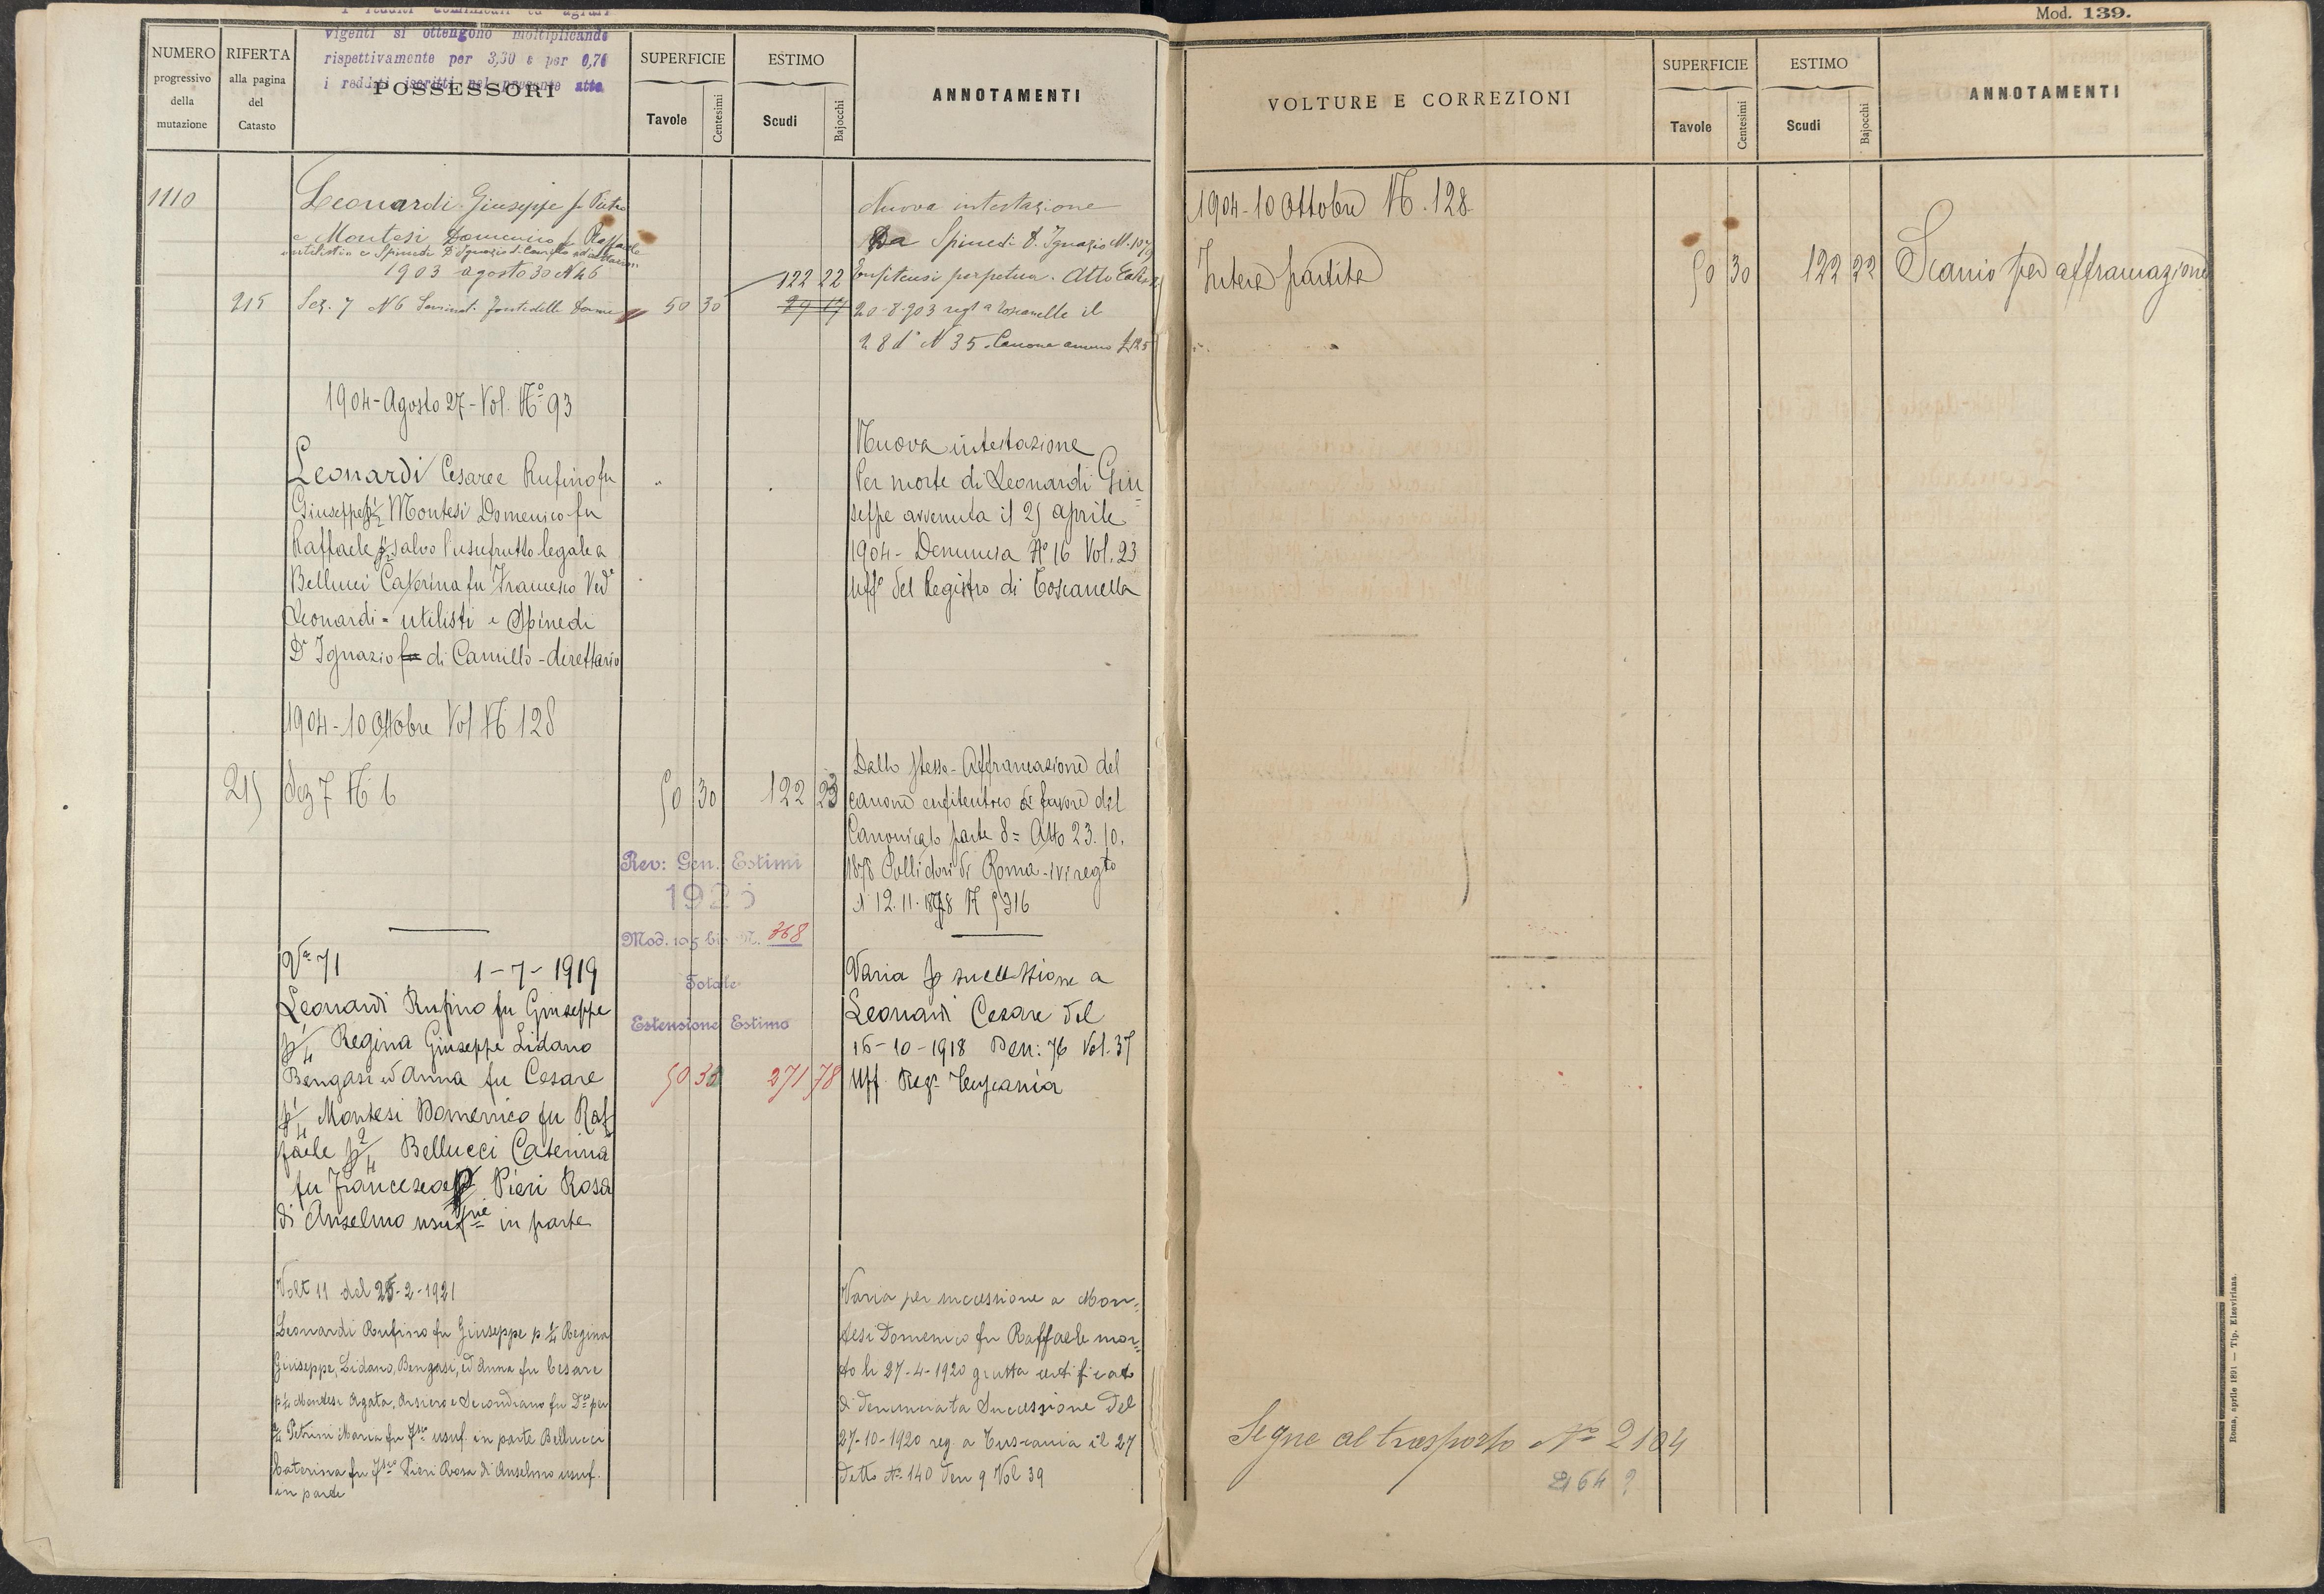 vigenti si ottengono moltiplicando
rispettivamente per 3,60 e per 0,76
i redditi iscritti nel presente atto
NUMERO
progressivo
della
mutazione
RIFERTA
alla pagina
del
Catasto
POSSESSORI
SUPERFICIE
Tavole
Centesimi
ESTIMO
Scudi
Bajocchi
ANNOTAMENTI
1110
Leonardi Giuseppe fu Pietro
e Montesi Domenico fu Raffaele
utilisti e Spinedi Dr Ignazio di Camillo
1903 agosto 30 N 46
215
Sez. 7 N 6
50 30
122 22
29 17
Nuova intestazione
Da Spinedi D. Ignazio N. 107
enfiteusi perpetua. Atto
20-8-903 regto a Toscanella il
28 do N 35. Canone annuo £ 125
1904-Agosto 27-Vol. No 93
Leonardi Cesare e Rufino fu
Giuseppe p 1/2 Montesi Domenico fu
Raffaele p 1/2 salvo l'usufrutto legale a
Bellucci Caterina fu Francesco Veda
Leonardi = utilisti e Spinedi
Dr Ignazio fu di Camillo - direttario
Nuova intestazione
Per morte di Leonardi Giu=
seppe avvenuta il 25 aprile
1904- Denuncia No 16 Vol. 23
Uffo del Registro di Toscanella
1904-10 Ottobre Vol N 128
215
Sez 7 N 6
50 30
122 23
Dallo stesso - Affrancazione del
canone enfiteutico a favore del
Canonicato parte 8= Atto 23.10.
1878 Pollidori di Roma - ivi regto
il 12.11.1878 N 5316
Rev: Gen. Estimi
1925
Mod. 105 bis N. 368
Totale
Estensione Estimo
50 30
271 78
Va 71 1-7-1919
Leonardi Rufino fu Giuseppe
p 1/4 Regina Giuseppe Lidano
Bengasi ed Anna fu Cesare
p 1/4 Montesi Domenico fu Raf
faele p 2/4 Bellucci Caterina
fu Francesco e Pieri Rosa
di Anselmo usufrie in parte
Varia p successione a
Leonardi Cesare del
16-10-1918 Den: 76 Vol. 37
Uff. Rego Tuscania
Volt 11 del 25-2-1921
Leonardi Rufino fu Giuseppe p 1/4 Regina
Giuseppe, Lidano, Bengasi, ed Anna fu Cesare
p 1/4 Montesi Agata, Arsiero e Secondiano fu Dco per
2/4 Petrini Maria fu Fsco usuf. in parte Bellucci
Caterina fu Fsco Pieri Rosa di Anselmo usuf.
in parte
Varia per successione a Mon=
tesi Domenico fu Raffaele mor=
to li 27-4-1920 giusta certificato
di denunciata Successione del
27-10-1920 reg. a Tuscania il 27
detto No 140 Den 9 Vol 39
Mod. 139.
VOLTURE E CORREZIONI
SUPERFICIE
Tavole
Centesimi
ESTIMO
Scudi
Bajocchi
ANNOTAMENTI
1904-10 Ottobre N. 128
Intera partita
50 30
122 22
Scarico per affrancazione
Segue al trasporto No 2104
2164 ?
Roma, aprile 1891 — Tip. Elzeviriana.